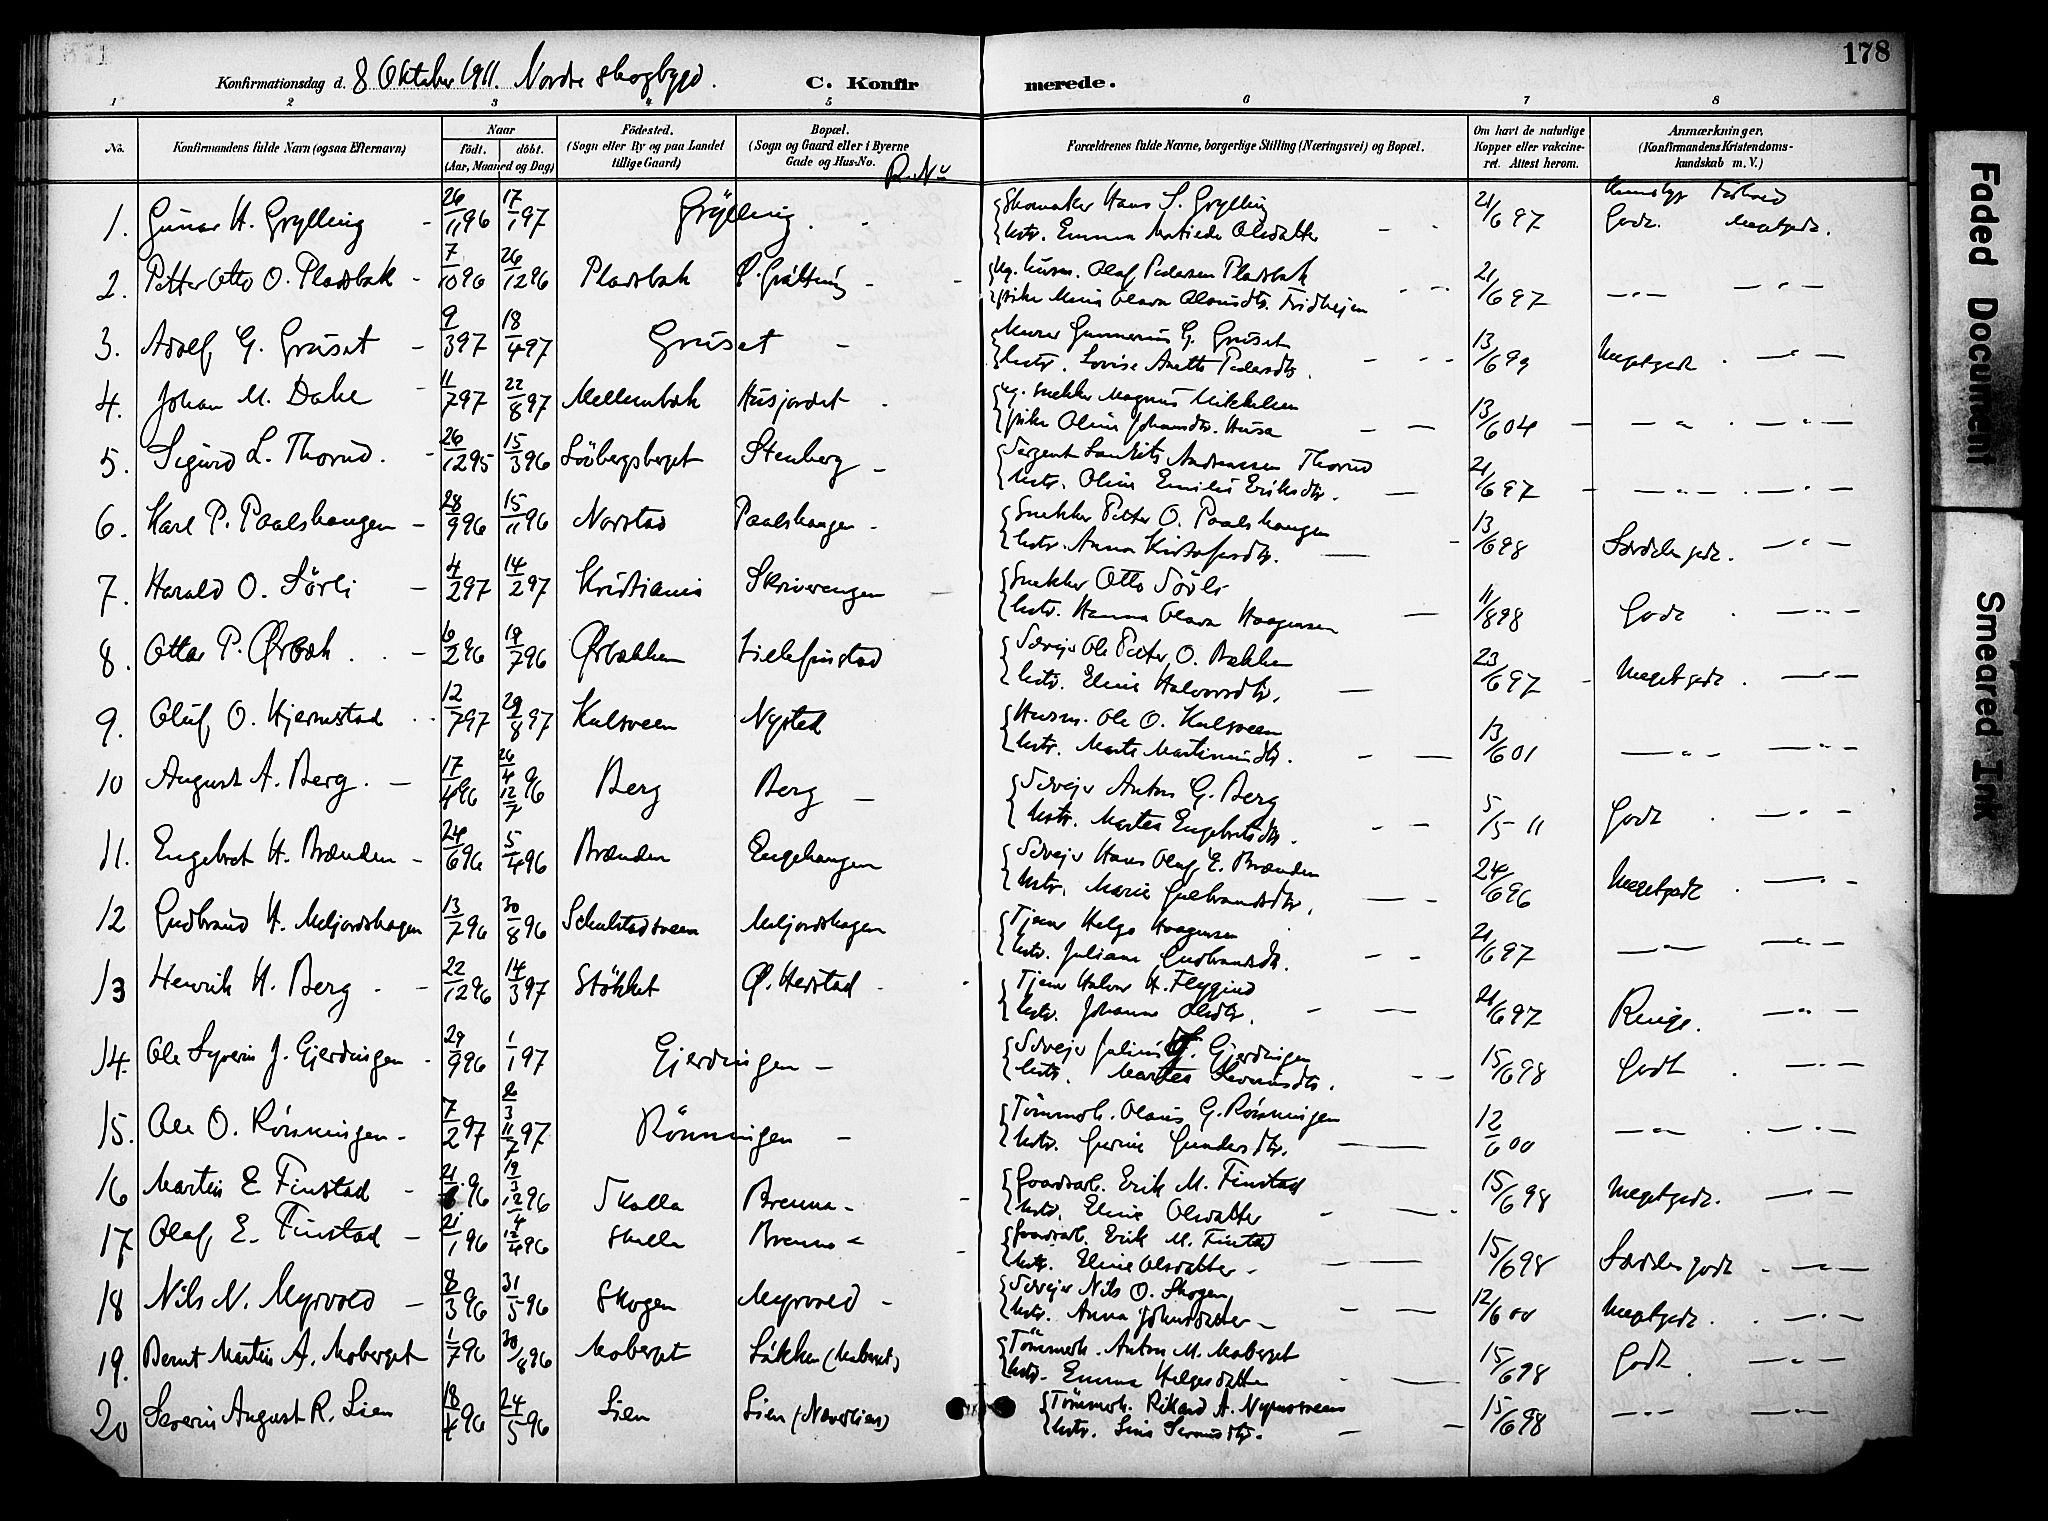 178
Konfirmationsdag d. 8 Oktober 1911. Nordre skogbygd. C. Konfirmerede.
1 2 3 4 5 6 7 8
No. Konfirmandens fulde Navn (ogsaa Efternavn) Naar födt. döbt. (Aar, Maaned og Dag) Födested. (Sogn eller By og paa Landet tillige Gaard) Bopæl. (Sogn og Gaard eller i Byerne Gade og Hus-No. Forældrenes fulde Navne, borgerlige Stilling (Næringsvei) og Bopæl. Om havt de naturlige Kopper eller vaccineret. Attest herom. Anmærkninger. (Konfirmandens Kristendomskundskab m. V.)
1. Gunar H. Grylling 26/11 96 17/1 97 Grylling Skomaker Hans S. Grylling 21/6 97 Godt. Megetgodt.
hstr. Emma Matilde Olsdatter
2. Petter Otto O. Pladsbak 7/10 96 26/12 96 Pladsbak 21/6 97 —"— —"—
Ug. husm. Olaf Pedersen Pladsbak
pike
3. Adolf G. Gruset 9/3 97 18/4 97 Gruset Murer Gunnerius G. Gruset 13/6 99 Megetgodt —"—
hstr. Lovise Anette Pedersdtr.
4. Johan M. Dahl 11/7 97 22/8 97 Mellembæk Husjordet ug. snekker Magnus Mikkelsen 13/6 04 —"— —"—
pike Oline Johansdtr. Husa
5. Sigurd L. Thorud. 26/12 95 15/3 96 Sörbergsberget Stenberg Sergent Lauritz Andreassen Thorud 21/6 97 —"— —"—
hstr. Oline Emilie Eriksdtr.
6. Karl P. Paalshaugen 28/9 96 15/11 96 Norstad Paalshaugen Snekker Petter O. Paalshaugen 13/6 98 Særdelesgodt. —"—
hstr. Anna Kristofersdtr.
7. Harald O. Sörli 4/2 97 14/2 97 Kristiania Skriverengen Snekker Otto Sörli 11/8 98 Godt —"—
hstr. Hanna Olava Haagensen
8. Ottar P. Ørbæk 6/2 96 19/7 96 Ørbækken Lillefinstad Selvejer Ole Petter O. Bækken 23/6 97 Megetgodt —"—
hstr. Eline Halvorsdtr.
9. Oluf O. Hjermstad 12/7 97 29/8 97 Kulsveen Nysted Husm. Ole O. Kulsveen 13/6 01 —"— —"—
hstr. Marte Martinusdtr.
10 August A. Berg. 17/4 96 26/4 12/7 96 Berg Berg Selvejer Anton G. Berg 5/5 11 Godt —"—
hstr. Martea Engebretsdtr.
11. Engebret H. Brænden 24/6 96 5/4 96 Brænden Engehaugen Selvejer Hans Olaf E. Brænden 24/6 96 Megetgodt —"—
hstr. Marie Gulbrandsdtr.
12 Gudbrand H. Meljordshagen 13/7 96 30/8 96 Schulstadsveen Meljordshagen Tjener Helge Haagensen 21/6 97 —"— —"—
hstr. Juliane Gudbrandsdtr.
13 Henrik H. Berg 22/12 96 14/3 97 Stökket Ø. Herstad Tjener Halvor H. Flygind 21/6 97 Ringe. —"—
hstr. Johanne Olsdtr.
14. Ole Syverin J. Gjerdingen 29/9 96 1/1 97 Gjerdingen Selvejer Julius Gjerdingen 15/6 98 Godt —"—
hstr. Martea
15. Ole O. Rönningen 7/2 97 2/3 11/7 97 Rönningen Tömmerh. Olaus G. Rönningen 12/6 00 —"— —"—
hstr. Gurine Gundersdtr.
16 Martin E Finstad 96 19/3 12/4 96 Skolla Brenna Gaardarb. Erik M. Finstad 15/6 98 Megetgodt. —"—
hstr. Eline Olsdatter
17 Olaf E. Finstad 21/1 96 12/4 96 Skolla Brenna Gaardarb. Erik M. Finstad 15/6 98 Særdelesgodt —"—
hstr. Eline Olsdatter
18 Nils N. Myrvold 8/3 96 31/5 96 Skogen Myrvold Selvejer Nils O. Skogen 12/6 00 Megetgodt. —"—
hstr. Anna Johnsdatter
19. Bernt Martin A. Moberget 1/7 96 30/8 96 Moberget Løkken (Moberget) Tömmerh. Anton M. Moberget 15/6 98 Godt —"—
hstr. Emma Helgesdatter
20 Severin August R. Lien 18/4 96 24/5 96 Lien Lien (Næverlien) Tömmerh. Rikard A. 15/6 98 —"— —"—
hstr. Lina
Faded Document
Smeared Ink